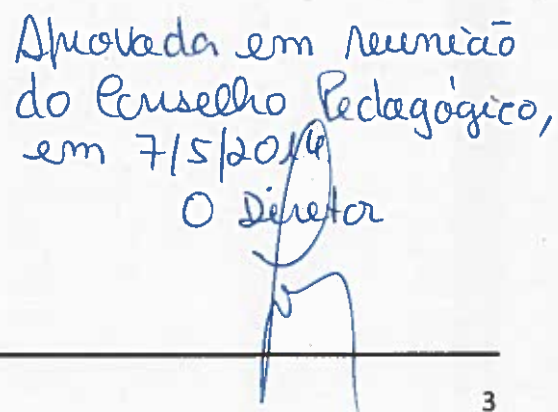 Aprovada em reunião
do Conselho Pedagógico,
em 7/5/2014
O Diretor
3